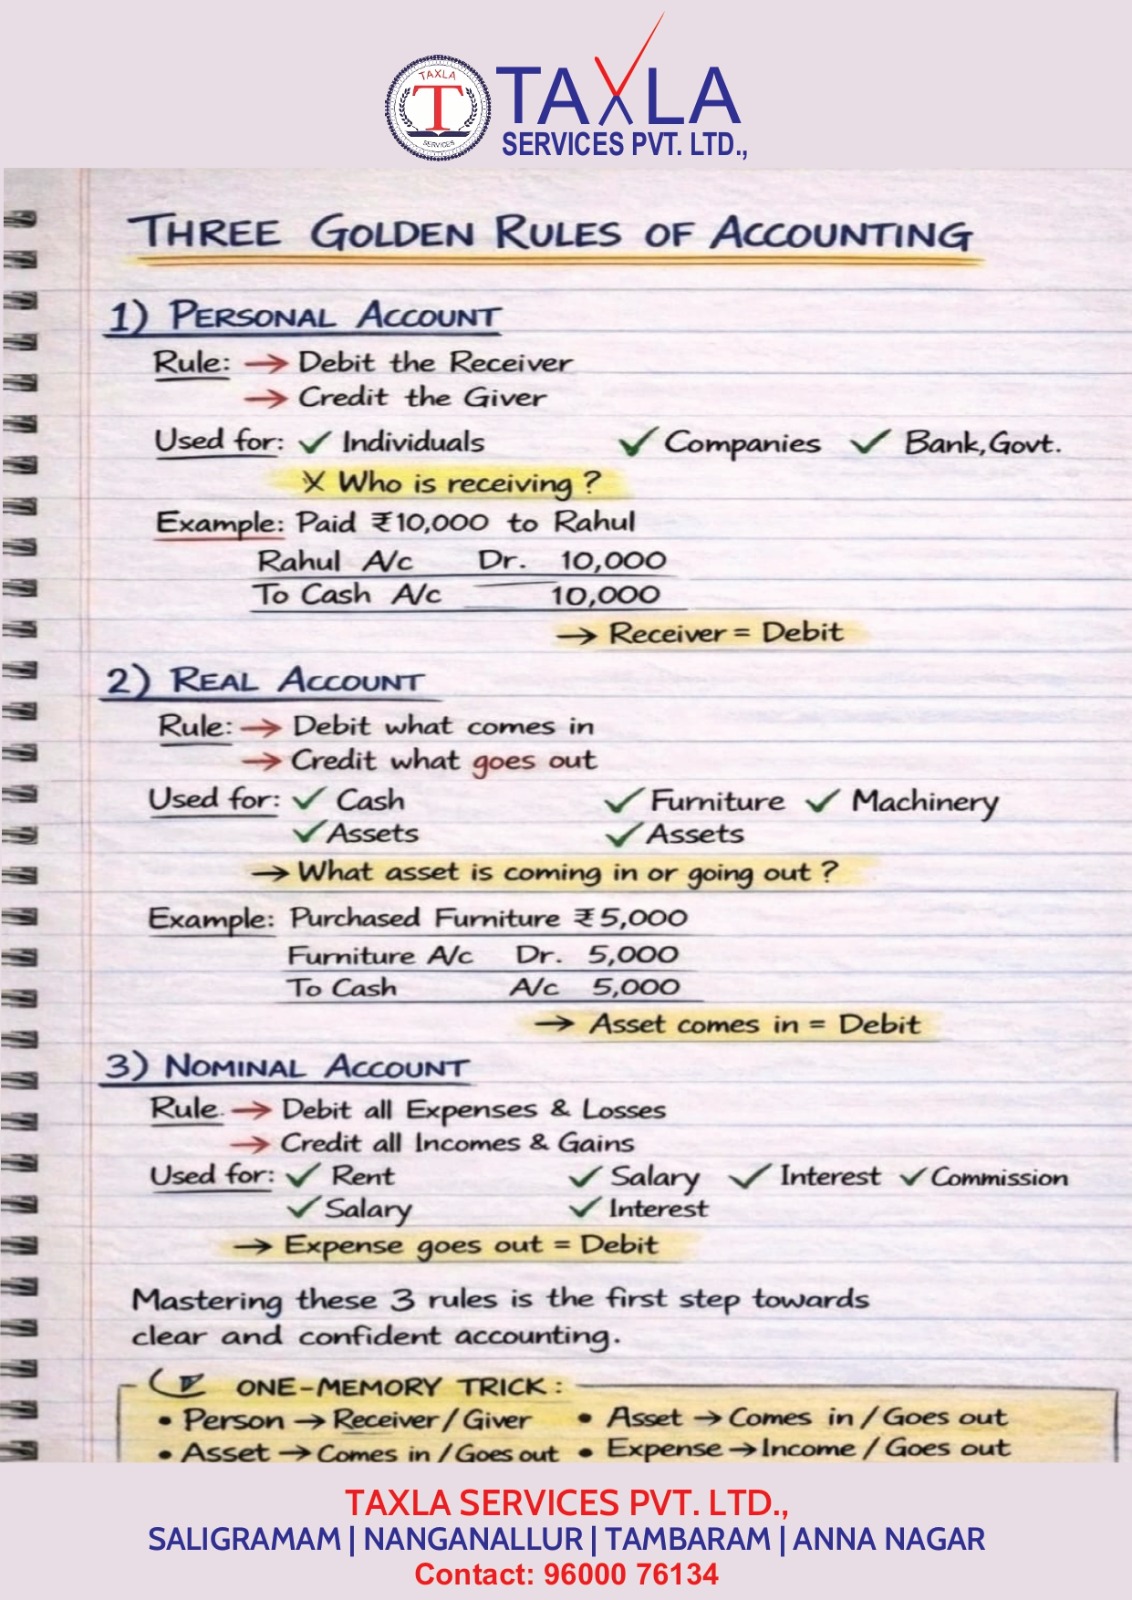 TAXLA
T
SERVICES
TAXLA
SERVICES PVT. LTD.,
THREE GOLDEN RULES OF ACCOUNTING
1) PERSONAL ACCOUNT
Rule: → Debit the Receiver
→ Credit the Giver
Used for: ✓ Individuals ✓ Companies ✓ Bank, Govt.
X Who is receiving ?
Example: Paid ₹10,000 to Rahul
Rahul A/c Dr. 10,000
To Cash A/c 10,000
→ Receiver = Debit
2) REAL ACCOUNT
Rule: → Debit what comes in
→ Credit what goes out
Used for: ✓ Cash ✓ Furniture ✓ Machinery
✓ Assets ✓ Assets
→ What asset is coming in or going out ?
Example: Purchased Furniture ₹5,000
Furniture A/c Dr. 5,000
To Cash A/c 5,000
→ Asset comes in = Debit
3) NOMINAL ACCOUNT
Rule. → Debit all Expenses & Losses
→ Credit all Incomes & Gains
Used for: ✓ Rent ✓ Salary ✓ Interest ✓ Commission
✓ Salary ✓ Interest
→ Expense goes out = Debit
Mastering these 3 rules is the first step towards
clear and confident accounting.
ONE-MEMORY TRICK:
• Person → Receiver / Giver • Asset → Comes in / Goes out
• Asset → Comes in / Goes out • Expense → Income / Goes out
TAXLA SERVICES PVT. LTD.,
SALIGRAMAM | NANGANALLUR | TAMBARAM | ANNA NAGAR
Contact: 96000 76134